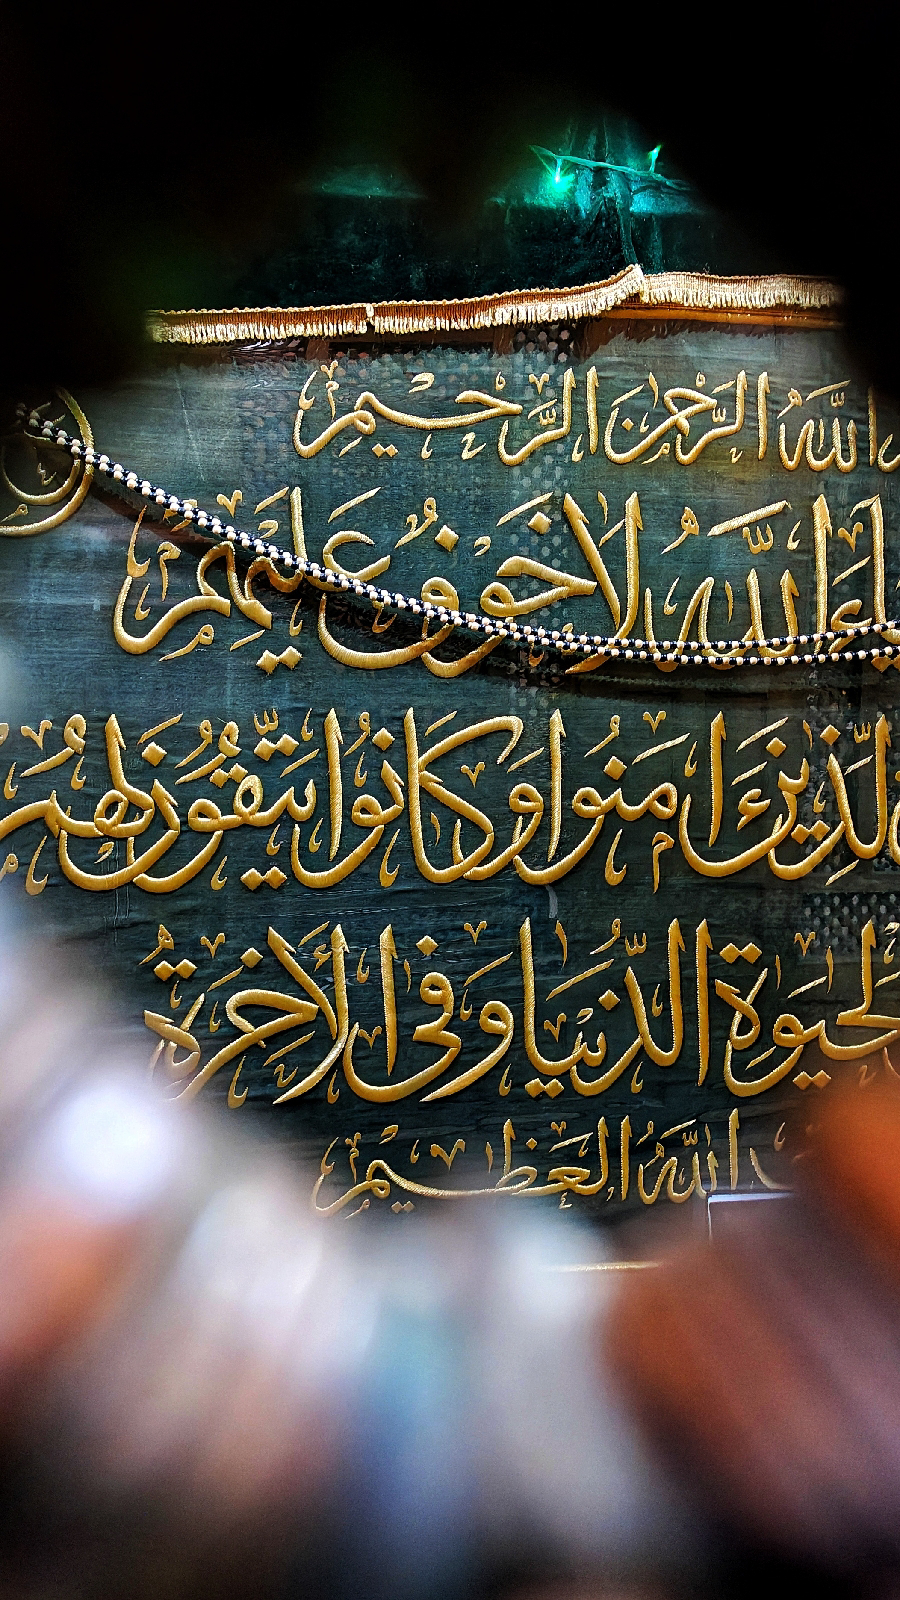 الله الرَّحْمٰنِ الرَّحِيمِ
اللهِ لَا خَوْفٌ عَلَيْهِمْ
الَّذِينَ ءَامَنُوا وَكَانُوا يَتَّقُونَ لَهُمُ
الْحَيَوٰةِ الدُّنْيَا وَفِي الْأَخِرَةِ
اللهُ الْعَظِيمُ